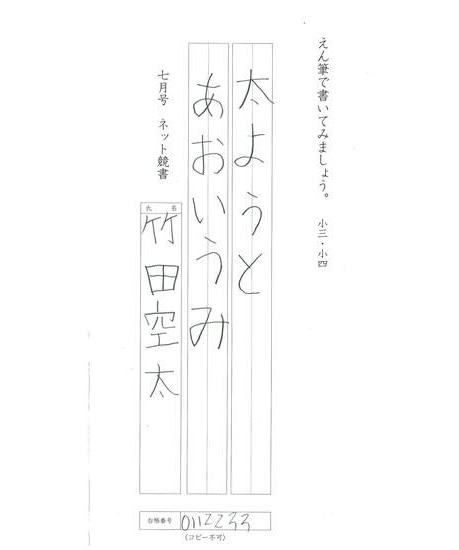 えん筆で書いてみましょう。 小三・小四
太ようと
あおいうみ
七月号 ネット競書
氏名
竹田空太
台帳番号 0112233
(コピー不可)